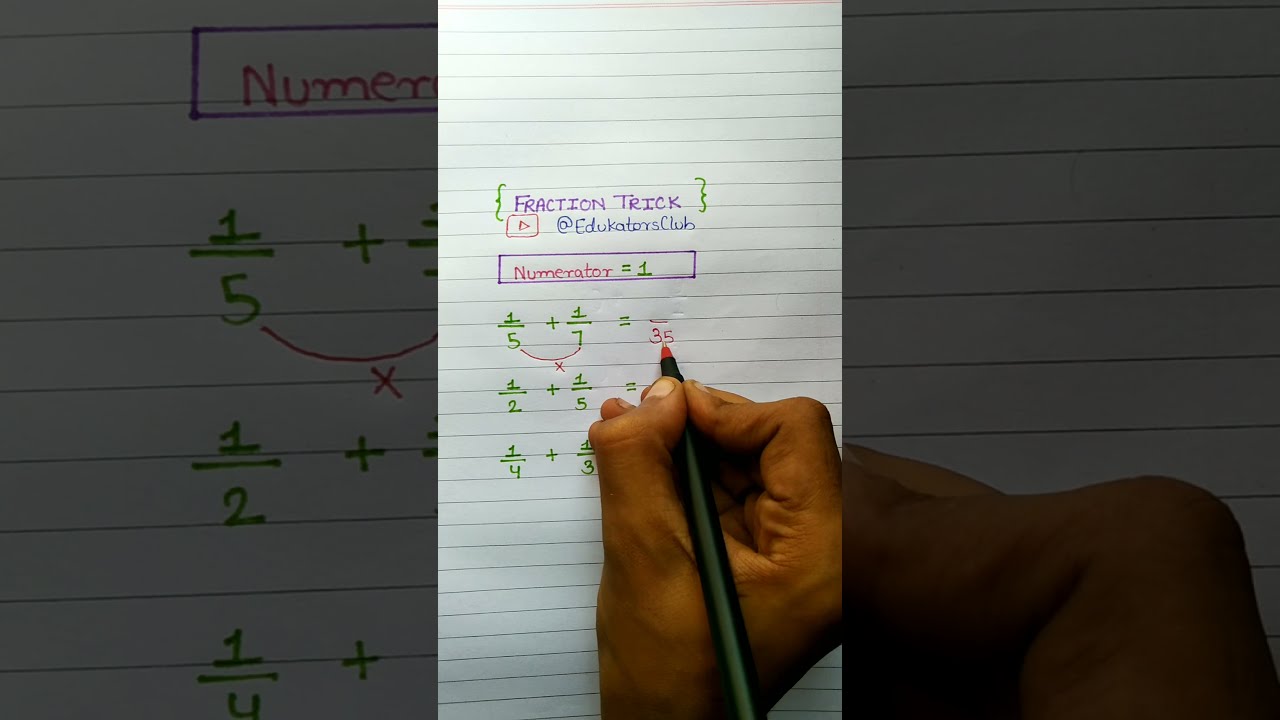 { FRACTION TRICK }
@EdukatorsClub
Numerator = 1
1/5 + 1/7 = /35
x
1/2 + 1/5 =
1/4 + 1/3